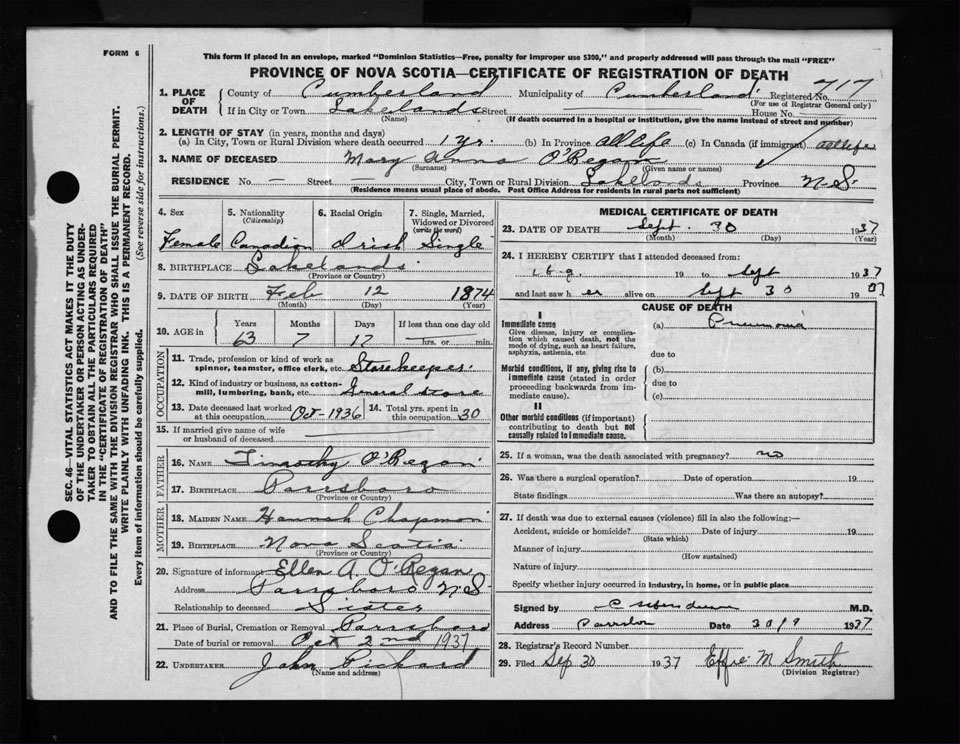 FORM 6
This form if placed in an envelope, marked "Dominion Statistics—Free, penalty for improper use $300," and properly addressed will pass through the mail "FREE"
PROVINCE OF NOVA SCOTIA—CERTIFICATE OF REGISTRATION OF DEATH
1. PLACE OF DEATH County of Cumberland Municipality of Cumberland Registered No. 717
(For use of Registrar General only)
If in City or Town Lakelands Street House No.
(Name) (If death occurred in a hospital or institution, give the name instead of street and number)
2. LENGTH OF STAY (in years, months and days)
(a) In City, Town or Rural Division where death occurred 1 yr. (b) In Province all life (c) In Canada (if immigrant) all life
3. NAME OF DECEASED Mary Anna O'Regan
(Surname) (Given name or names)
RESIDENCE No. — Street — City, Town or Rural Division Lakelands Province N.S.
(Residence means usual place of abode. Post Office Address for residents in rural parts not sufficient)
4. Sex 5. Nationality (Citizenship) 6. Racial Origin 7. Single, Married, Widowed or Divorced (write the word)
Female Canadian Irish Single
8. BIRTHPLACE Lakelands
(Province or Country)
9. DATE OF BIRTH Feb 12 1874
(Month) (Day) (Year)
10. AGE in Years Months Days If less than one day old
63 7 17 hrs. or min.
OCCUPATION
11. Trade, profession or kind of work as spinner, teamster, office clerk, etc. Storekeeper.
12. Kind of industry or business, as cotton-mill, lumbering, bank, etc. General store
13. Date deceased last worked at this occupation Oct 1936 14. Total yrs. spent in this occupation 30
15. If married give name of wife or husband of deceased
FATHER
16. NAME Timothy O'Regan
17. BIRTHPLACE Parrsboro
(Province or Country)
MOTHER
18. MAIDEN NAME Hannah Chapman
19. BIRTHPLACE Nova Scotia
(Province or Country)
20. Signature of informant Ellen A. O'Regan
Address Parrsboro N.S
Relationship to deceased Sister
21. Place of Burial, Cremation or Removal Parrsboro
Date of burial or removal Oct 2nd 1937
22. UNDERTAKER John Pickard
(Name and address)
MEDICAL CERTIFICATE OF DEATH
23. DATE OF DEATH Sept. 30 1937
(Month) (Day) (Year)
24. I HEREBY CERTIFY that I attended deceased from:
19 to Sept 1937
and last saw h er alive on Sept 30 19 37
CAUSE OF DEATH
I
Immediate cause (a) Pneumonia
Give disease, injury or complication which caused death, not the mode of dying, such as heart failure, asphyxia, asthenia, etc
due to
Morbid conditions, if any, giving rise to immediate cause (stated in order proceeding backwards from immediate cause).
(b)
due to
(c)
II
Other morbid conditions (if important) contributing to death but not causally related to immediate cause.
25. If a woman, was the death associated with pregnancy? no
26. Was there a surgical operation? Date of operation 19
State findings Was there an autopsy?
27. If death was due to external causes (violence) fill in also the following:—
Accident, suicide or homicide? Date of injury 19
(State which)
Manner of injury
(How sustained)
Nature of injury
Specify whether injury occurred in industry, in home, or in public place
Signed by M.D.
Address Date 30/9 1937
28. Registrar's Record Number
29. Filed Sep 30 1937 Effie M Smith
(Division Registrar)
SEC. 46—VITAL STATISTICS ACT MAKES IT THE DUTY
OF THE UNDERTAKER OR PERSON ACTING AS UNDER-
TAKER TO OBTAIN ALL THE PARTICULARS REQUIRED
IN THE "CERTIFICATE OF REGISTRATION OF DEATH"
AND TO FILE THE SAME WITH THE DIVISION REGISTRAR WHO SHALL ISSUE THE BURIAL PERMIT.
WRITE PLAINLY WITH UNFADING INK. THIS IS A PERMANENT RECORD.
Every item of information should be carefully supplied. (See reverse side for instructions.)